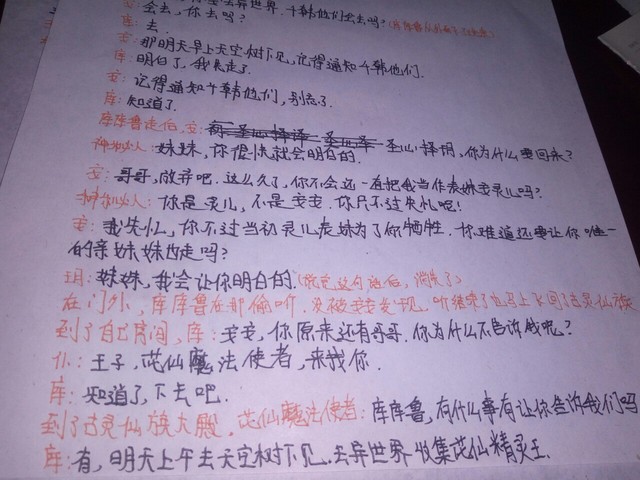 去异世界,千韩他们会去吗?
安:会去,你去吗?
库:去.
安:那明天早上天空树下见,记得通知千韩他们.
库:明白了,我先走了.
安:记得通知千韩他们,别忘了.
库:知道了.
库库鲁走后,安: 圣心择玥,你为什么要回来?
神秘人:妹妹,你很快就会明白的.
安:哥哥,放弃吧.这么久了,你不会还一直把我当作表妹安灵儿吗?
神秘人:你是灵儿,不是安安.你只不过失忆呢!
安:我失忆,你不过当初灵儿表妹为了你牺牲.你难道还要让你唯一
的亲妹妹也走吗?
玥:妹妹,我会让你明白的.(说完这句话后,消失了)
在门外,库库鲁在那偷听,没被安安发现,听结束了也马上飞回了古灵仙族
到了自己房间,库:安安,你原来还有哥哥.你为什么不告诉我呢?
仆:王子,花仙魔法使者,来找你.
库:知道了,下去吧.
到了古灵仙族大殿,花仙魔法使者:库库鲁,有什么事有让你告诉我们吗
库:有,明天上午去天空树下见.去异世界收集花仙精灵王.